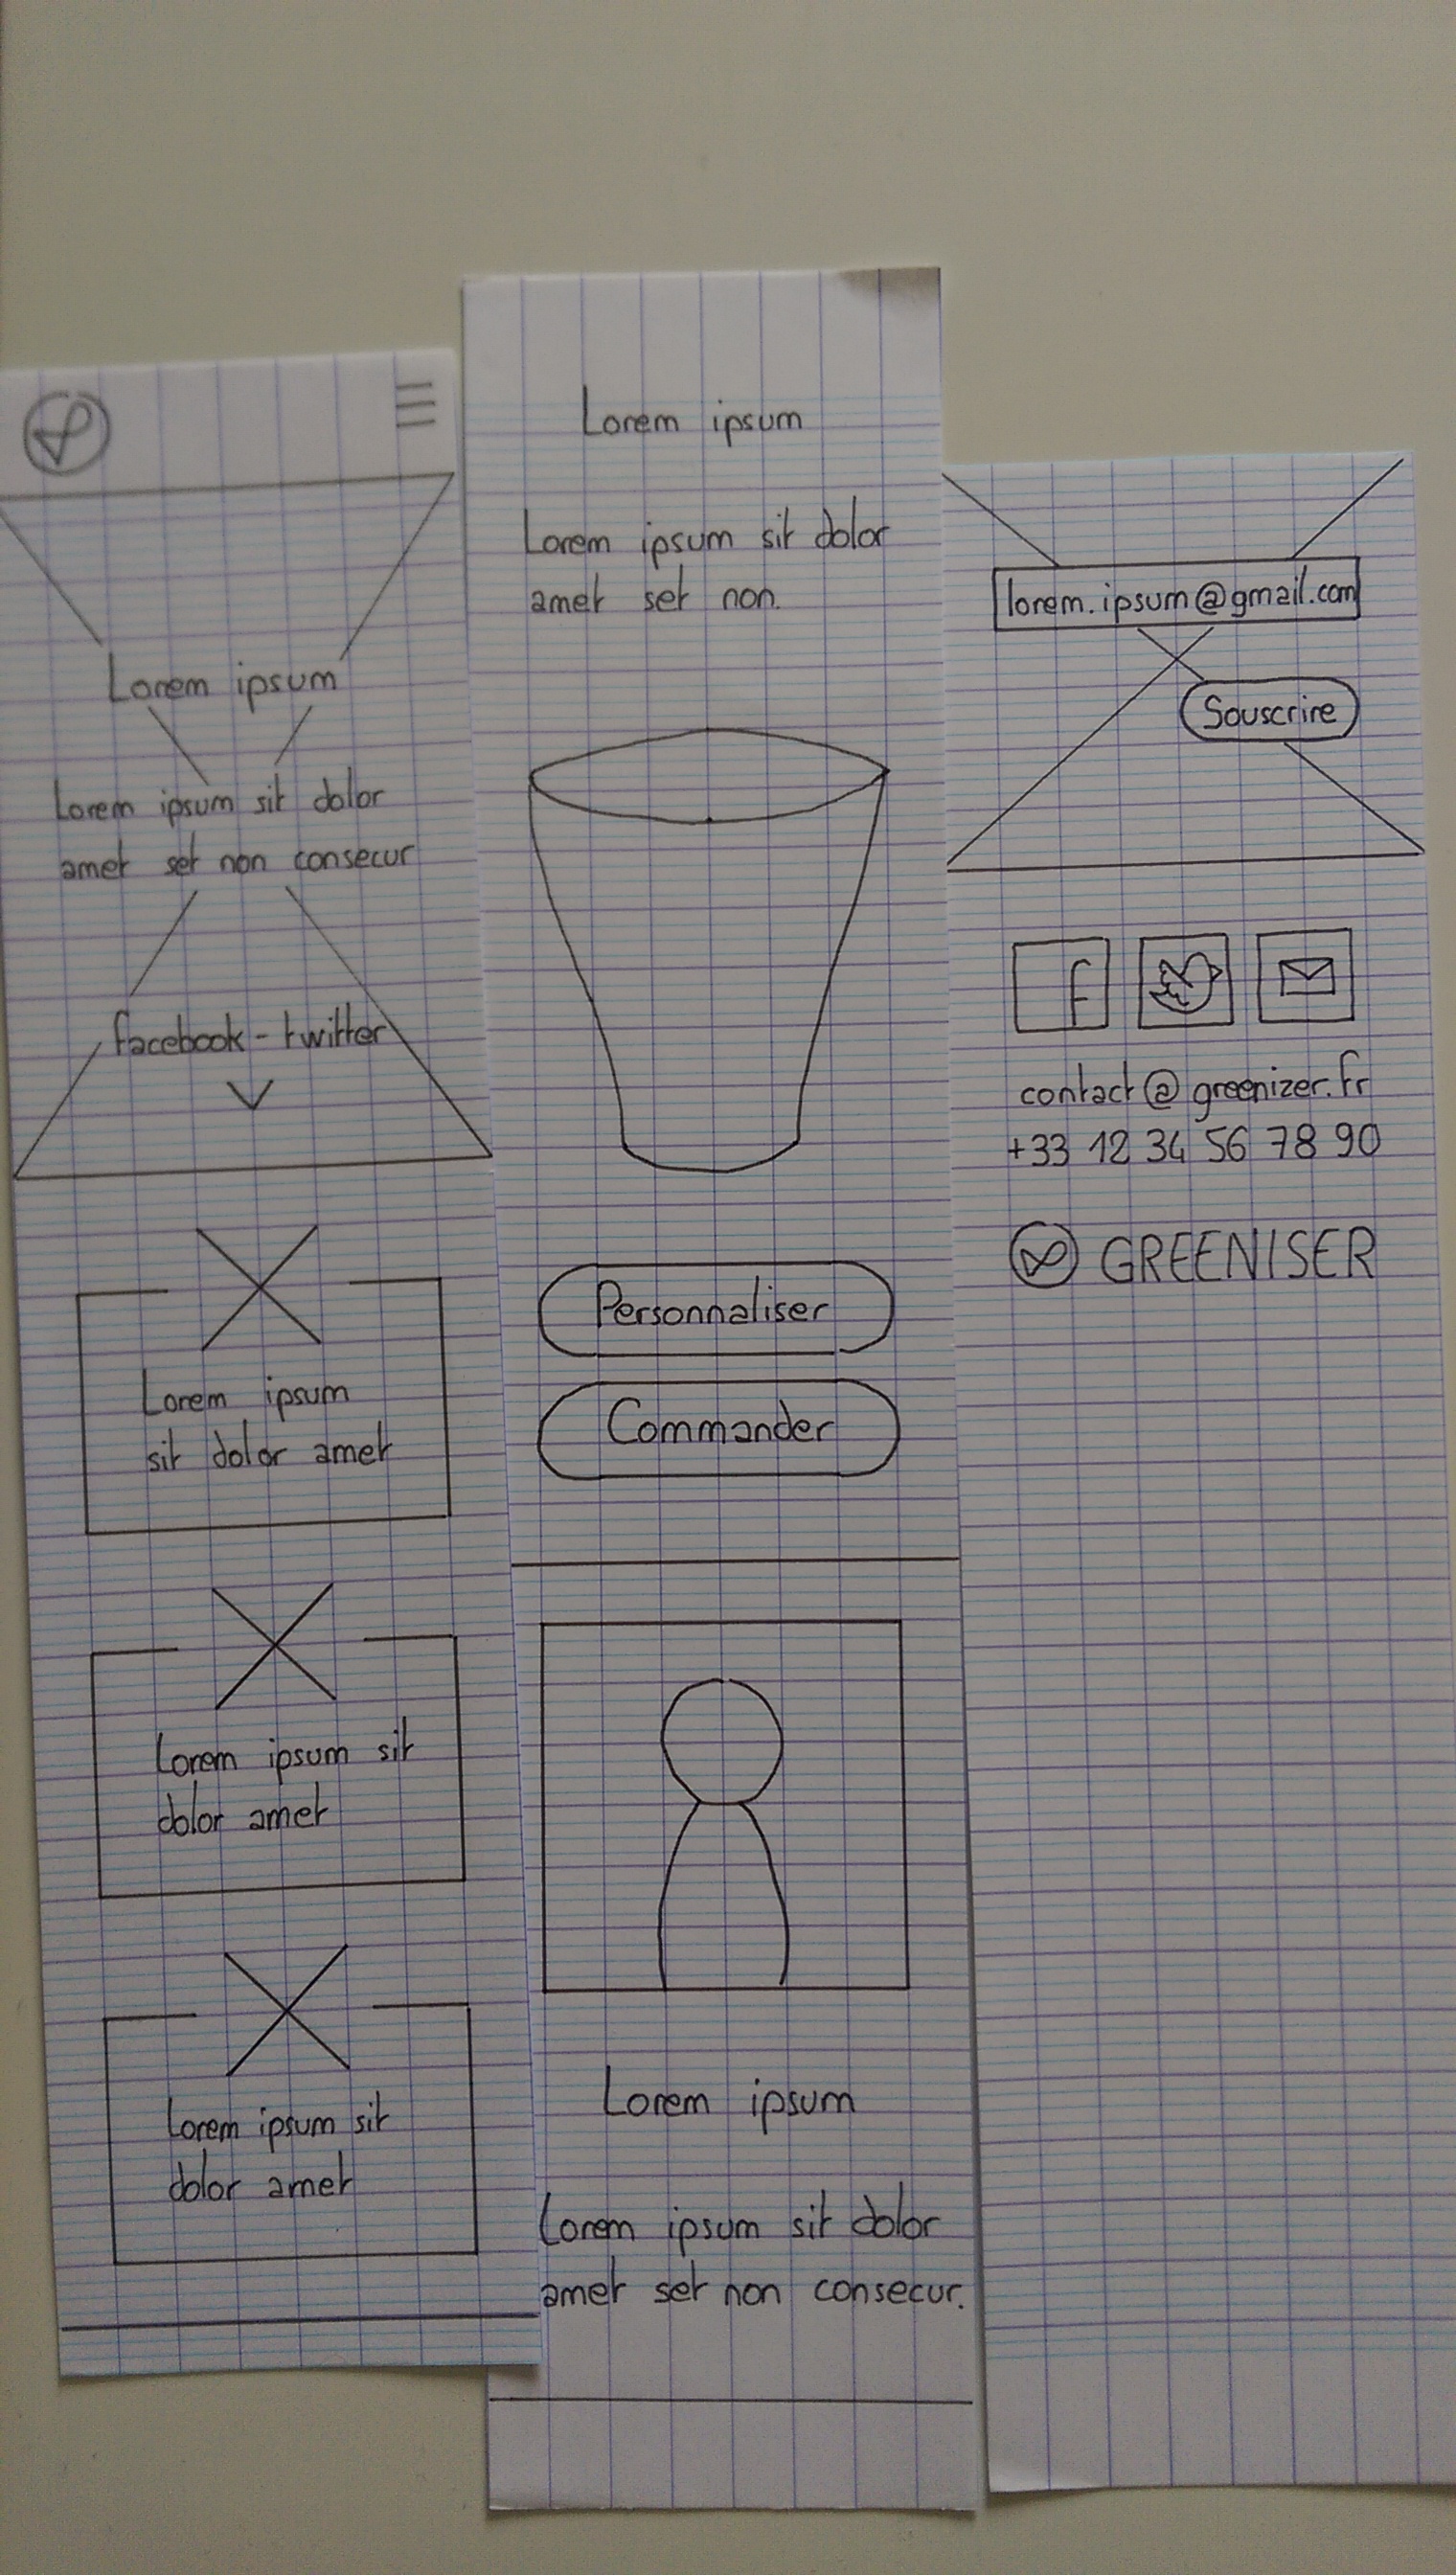 Lorem ipsum
Lorem ipsum sit dolor
amet set non consecur
facebook - twitter
Lorem ipsum
sit dolor amet
Lorem ipsum sit
dolor amet
Lorem ipsum sit
dolor amet
Lorem ipsum
Lorem ipsum sit dolor
amet set non.
Personnaliser
Commander
Lorem ipsum
Lorem ipsum sit dolor
amet set non consecur.
lorem.ipsum@gmail.com
Souscrire
f
contact@greenizer.fr
+33 12 34 56 78 90
GREENISER